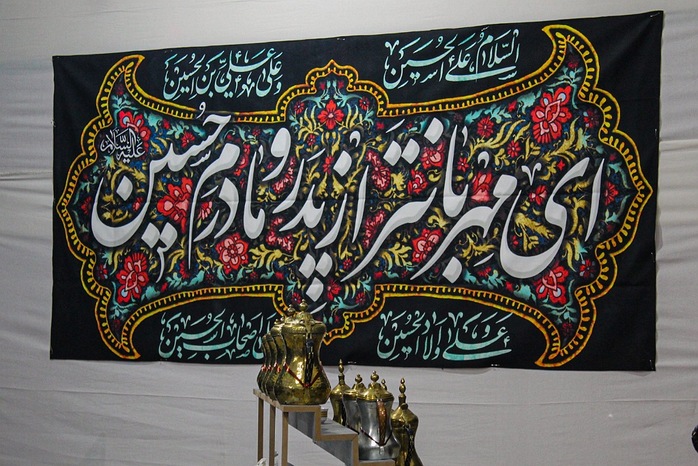 السلام علی الحسین
و علی علی بن الحسین
ای مهربانتر از پدر و مادرم حسین
علیه السلام
و علی اولاد الحسین
اصحاب الحسین